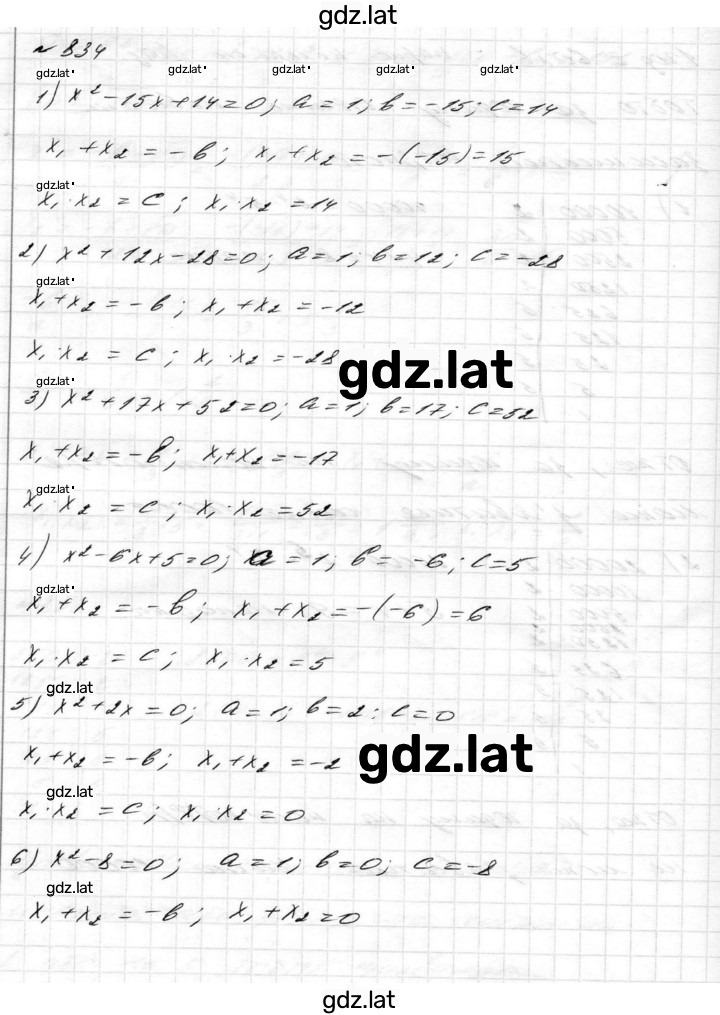 gdz.lat
№ 834
gdz.lat gdz.lat gdz.lat gdz.lat gdz.lat
1) x² - 15x + 14 = 0; a = 1; b = -15; c = 14
x₁ + x₂ = -b; x₁ + x₂ = -(-15) = 15
gdz.lat
x₁ · x₂ = c; x₁ · x₂ = 14
2) x² + 12x - 28 = 0; a = 1; b = 12; c = -28
gdz.lat
x₁ + x₂ = -b; x₁ + x₂ = -12
x₁ · x₂ = c; x₁ · x₂ = -28
gdz.lat
gdz.lat
3) x² + 17x + 52 = 0; a = 1; b = 17; c = 52
x₁ + x₂ = -b; x₁ + x₂ = -17
gdz.lat
x₁ · x₂ = c; x₁ · x₂ = 52
4) x² - 6x + 5 = 0; a = 1; b = -6; c = 5
gdz.lat
x₁ + x₂ = -b; x₁ + x₂ = -(-6) = 6
x₁ · x₂ = c; x₁ · x₂ = 5
gdz.lat
5) x² + 2x = 0; a = 1; b = 2; c = 0
x₁ + x₂ = -b; x₁ + x₂ = -2
gdz.lat
gdz.lat
x₁ · x₂ = c; x₁ · x₂ = 0
6) x² - 8 = 0; a = 1; b = 0; c = -8
gdz.lat
x₁ + x₂ = -b; x₁ + x₂ = 0
gdz.lat